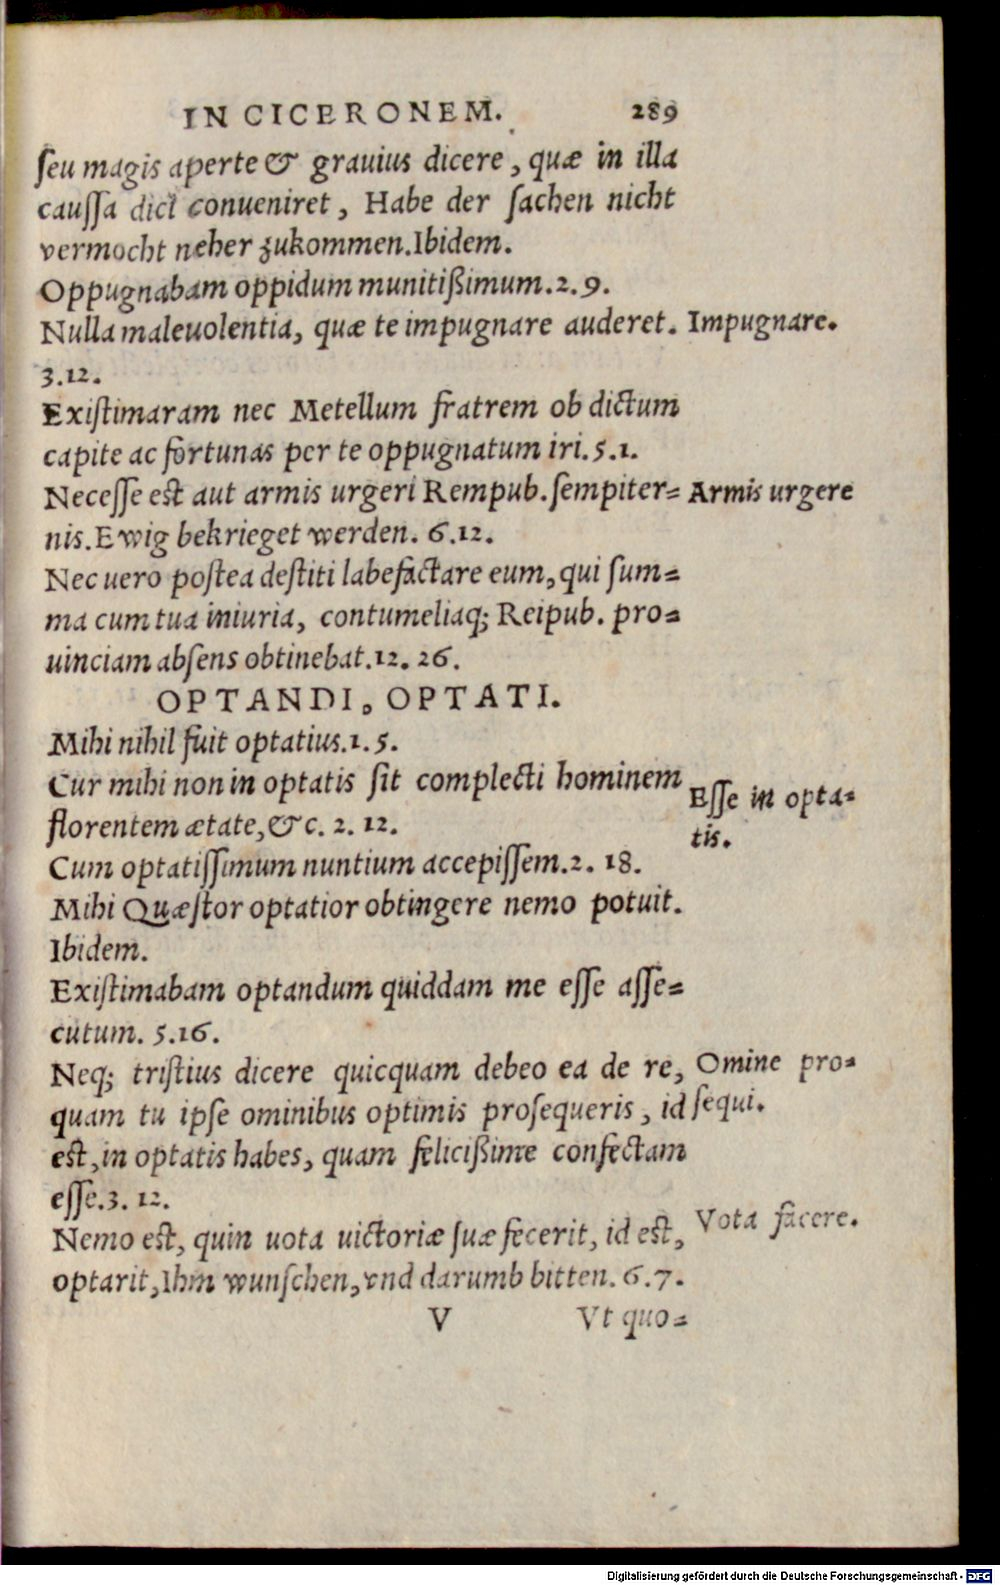 IN CICERONEM. 289
ſeu magis aperte & grauius dicere, quæ in illa
cauſſa dici conueniret, Habe der ſachen nicht
vermocht neher zukommen. Ibidem.
Oppugnabam oppidum munitißimum. 2. 9.
Nulla maleuolentia, quæ te impugnare auderet. Impugnare.
3. 12.
Exiſtimaram nec Metellum fratrem ob dictum
capite ac fortunas per te oppugnatum iri. 5. 1.
Neceſſe est aut armis urgeri Rempub. ſempiter= Armis urgere
nis. Ewig bekrieget werden. 6. 12.
Nec uero poſtea deſtiti labefactare eum, qui ſum=
ma cum tua iniuria, contumeliaq; Reipub. pro=
uinciam abſens obtinebat. 12. 26.
OPTANDI, OPTATI.
Mihi nihil fuit optatius. 1. 5.
Cur mihi non in optatis ſit complecti hominem
Eſſe in opta=
florentem ætate, &c. 2. 12.
tis.
Cum optatiſſimum nuntium accepiſſem. 2. 18.
Mihi Quæſtor optatior obtingere nemo potuit.
Ibidem.
Exiſtimabam optandum quiddam me eſſe aſſe=
cutum. 5. 16.
Neq; triſtius dicere quicquam debeo ea de re, Omine pro=
quam tu ipſe ominibus optimis proſequeris, id ſequi.
est, in optatis habes, quam felicißime confectam
eſſe. 3. 12.
Nemo est, quin uota uictoriæ ſuæ fecerit, id est, Vota facere.
optarit, Ihm wunſchen, vnd darumb bitten. 6. 7.
V Vt quo=
Digitalisierung gefördert durch die Deutsche Forschungsgemeinschaft - DFG